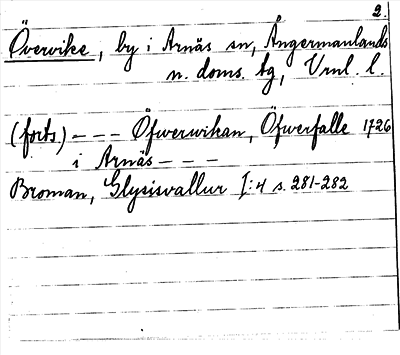 2.
Övervike, by i Arnäs sn, Ångermanlands
n. doms. tg, Vrnl. l.
(forts.) - - - Öfwerwikan, Öfwerfalle 1726
i Arnäs - - -
Broman, Glysisvallur I:4 s. 281-282